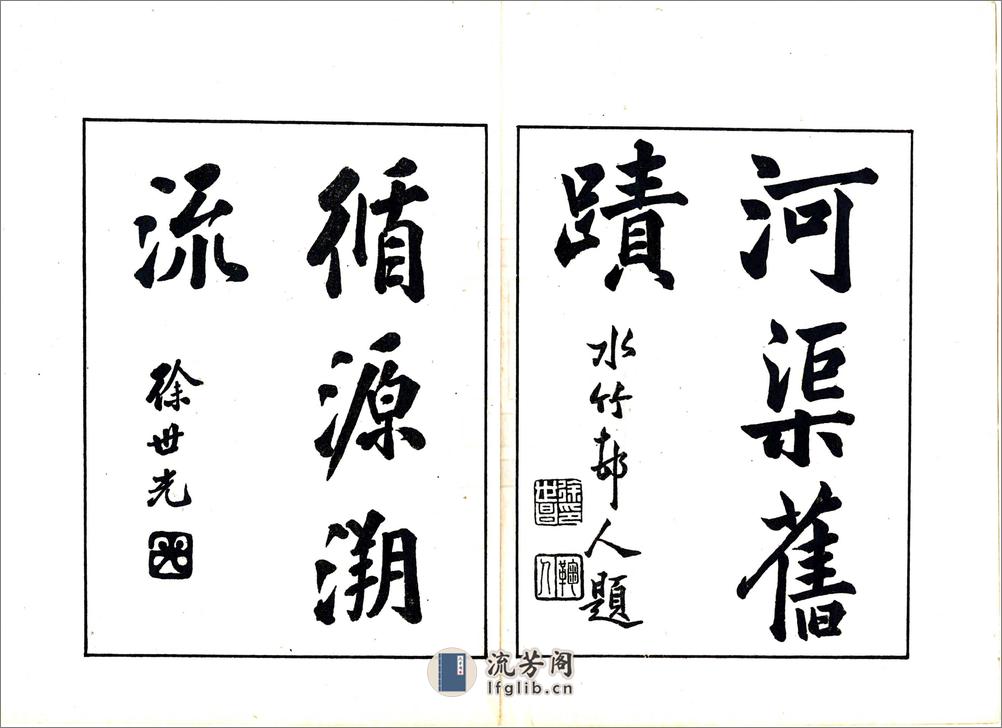 河渠舊
蹟
水竹邨人題
徐世昌印
循源溯
流
徐世光
流芳阁
lfglib.cn